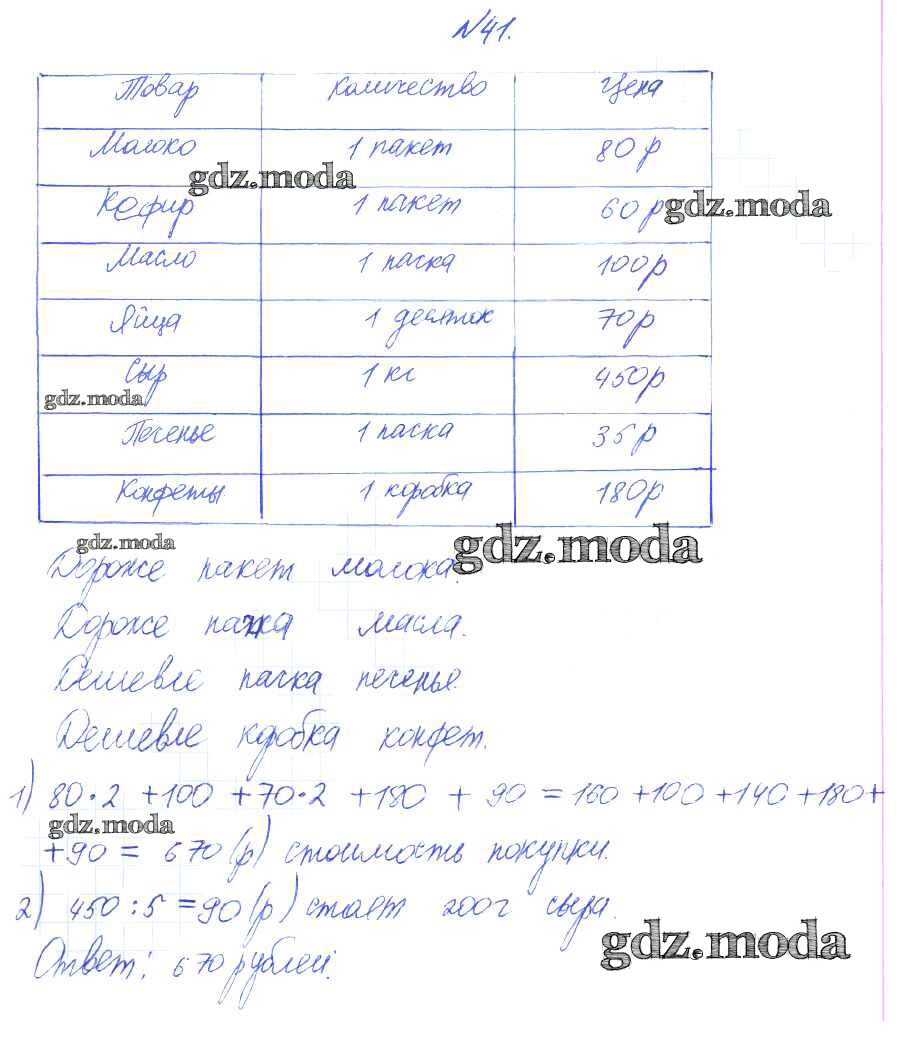 №41.
Товар Количество Цена
Молоко 1 пакет 80 р
gdz.moda
Кефир 1 пакет 60 р
gdz.moda
Масло 1 пачка 100р
Яйца 1 десяток 70р
Сыр 1 кг 450р
gdz.moda
Печенье 1 пачка 35 р
Конфеты 1 коробка 180р
gdz.moda
gdz.moda
Дороже пакет молока.
Дороже пачка масла.
Дешевле пачка печенья.
Дешевле коробка конфет.
1) 80·2 +100 +70·2 +180 + 90 = 160 +100 +140 +180+
gdz.moda
+90 = 670 (р) стоимость покупки.
2) 450 : 5 = 90 (р) стоит 200г сыра.
gdz.moda
Ответ: 670 рублей.